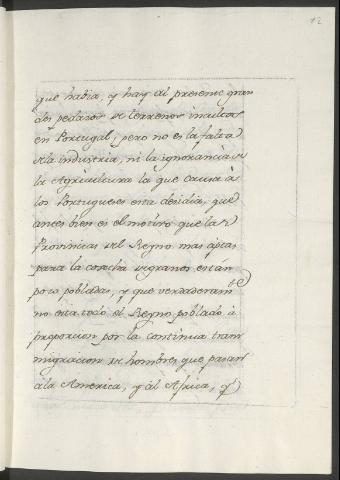 12
que habia, y hay al presente gran
des pedazos de terrenos incultos
en Portugal, pero no es la falta
de la industria, ni la ignorancia de
la Agricultura la que causa à
los Portugueses esta desidia, que
antes bien es el motivo que las
Provincias del Reyno mas aptas
para la cosecha de granos están
poco pobladas, y que verdaderam.te
no esta todo el Reyno poblado à
proporcion por la continua trans
migracion de hombres que pasan
à la America, y àl Africa, y